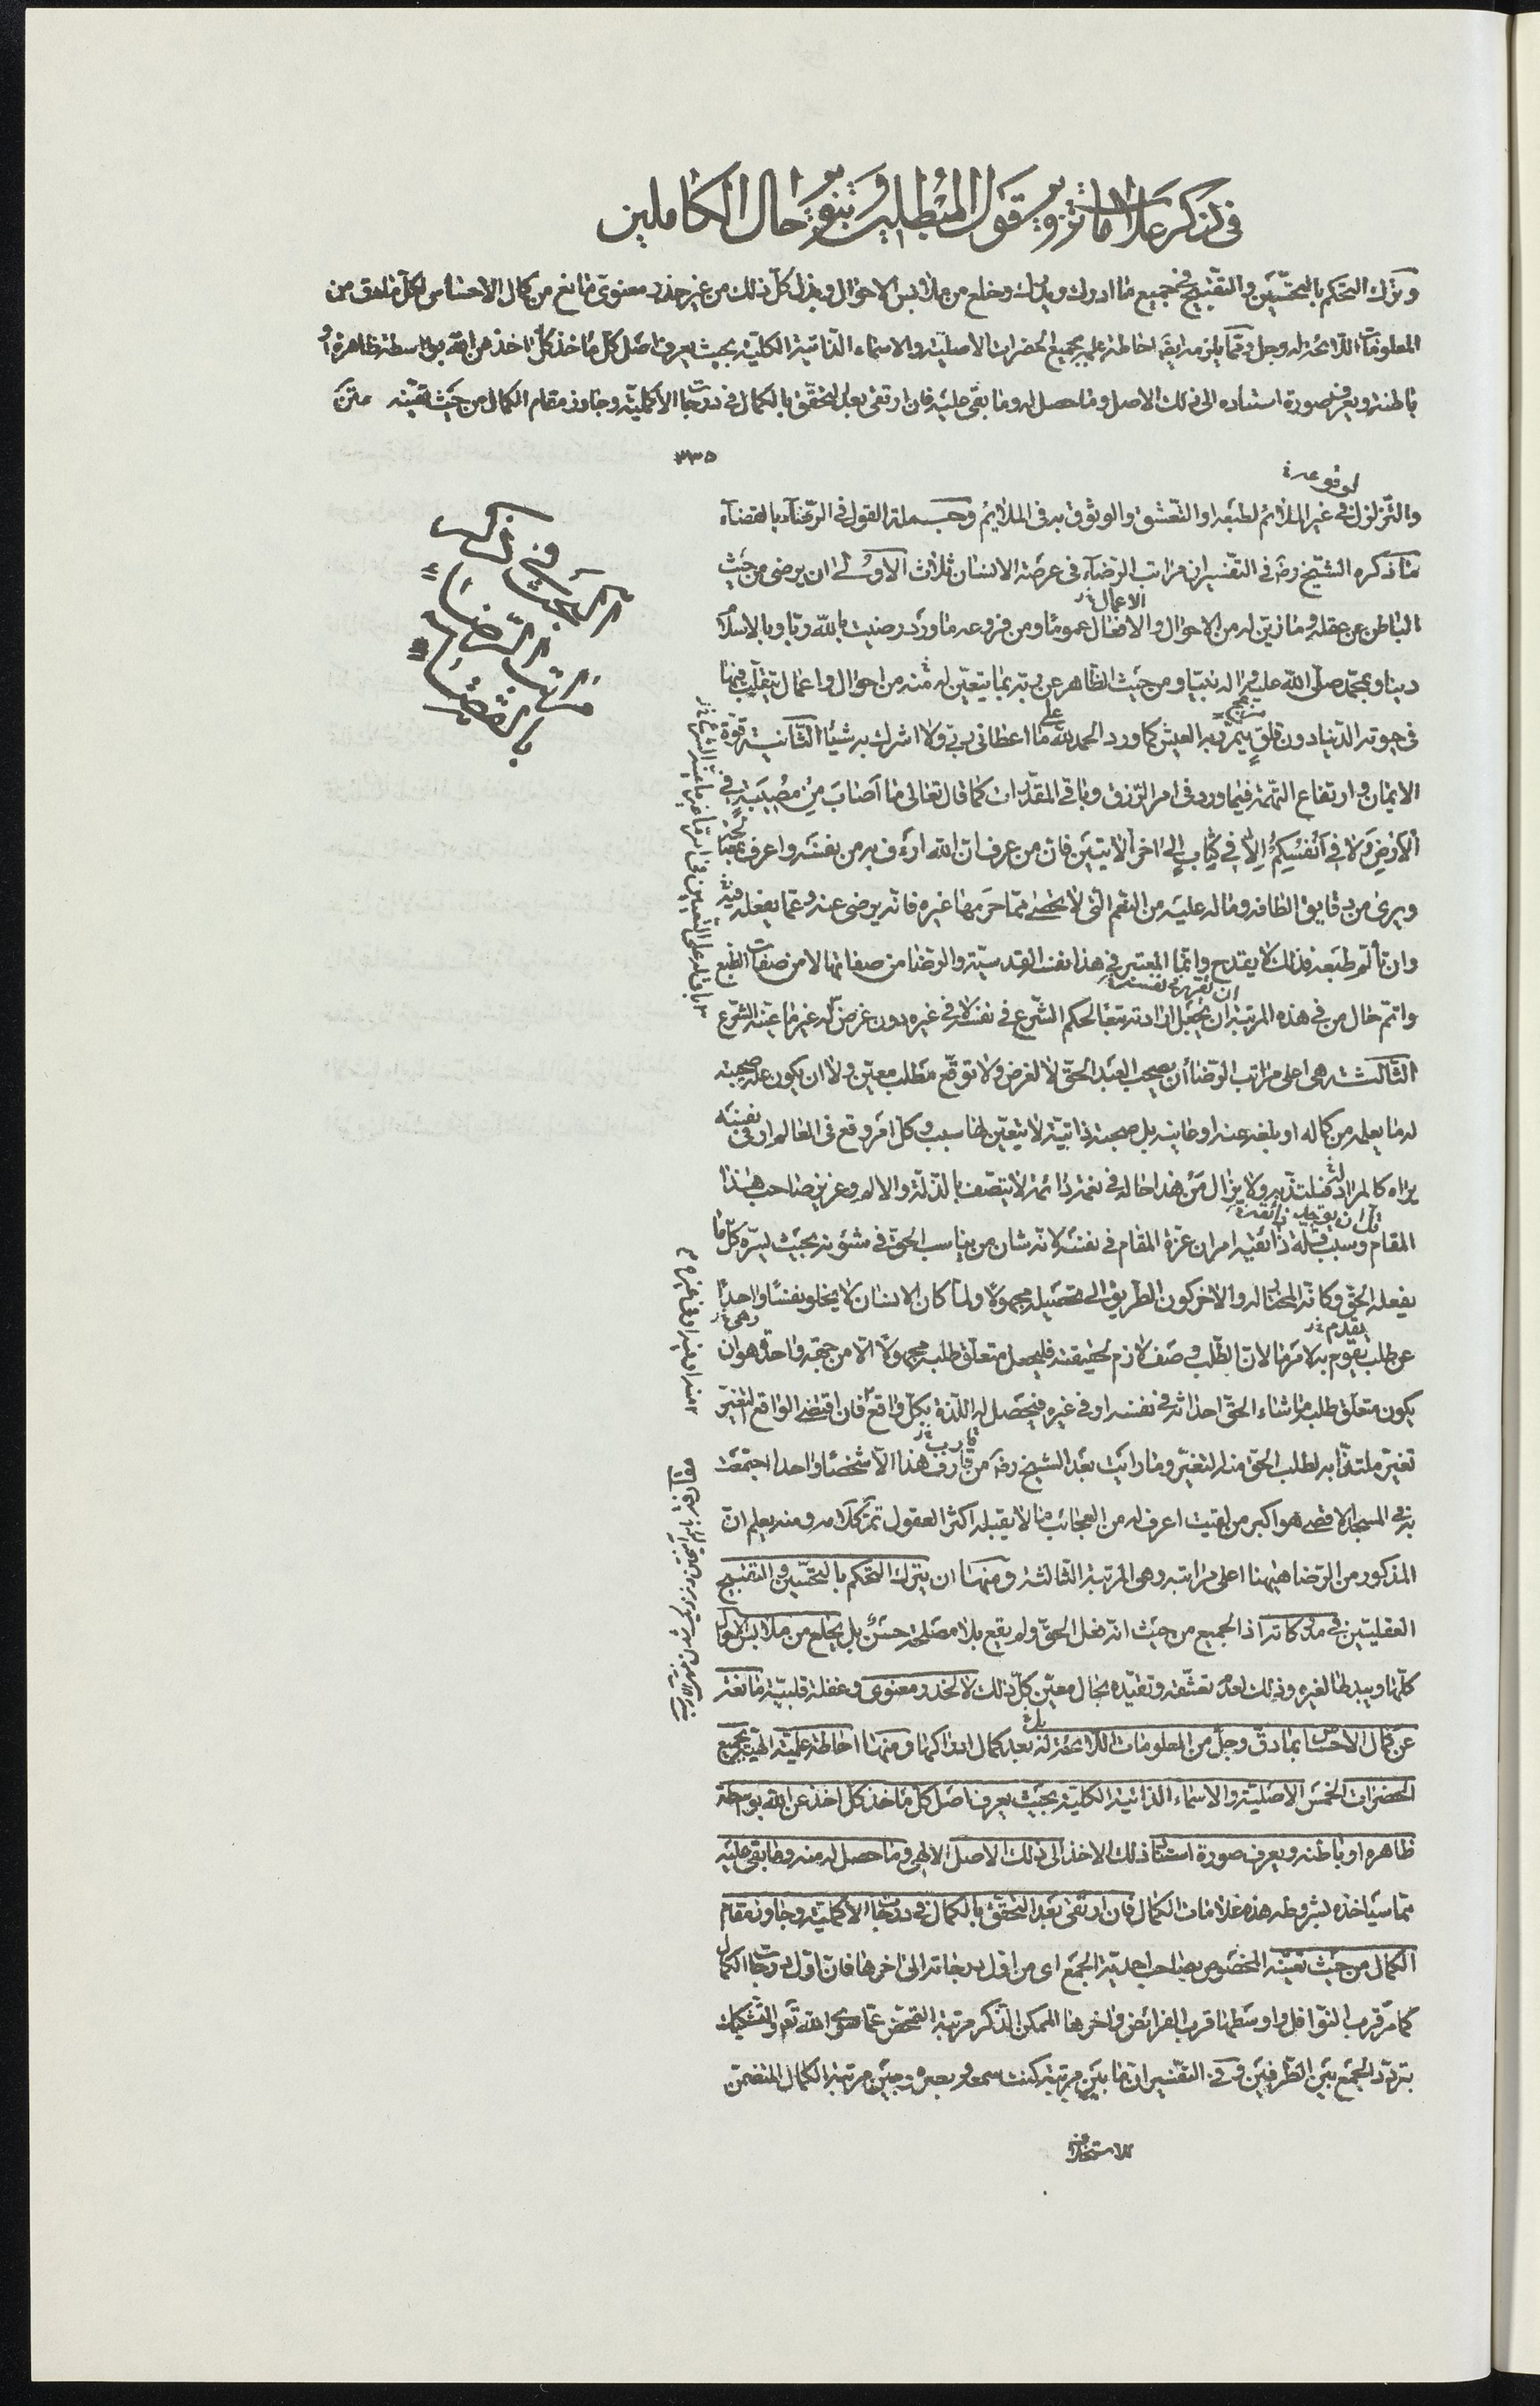 في ذكر علامات تزوير قول المبطلين وتنوير حال الكاملين
وترك التحكم بالتحسين والتقبيح في جميع ما ادرك ويدرك وخلع من ملابس الاحوال وبذل كل ذلك من غير خدر معنوي مانع من كمال الاحساس لكل ما دق من
المعلومات اللائحة له وجل ومما يلزمه ايضا احاطة علمية بجميع الحضرات الاصلية والاسماء الذاتية الكلية بحيث يعرف اصل كل ماخذ كل اخذ عن الله بواسطة ظاهرة او
باطنة ويعرف صورة استناده الى ذلك الاصل وما حصل له وما بقى عليه فان ارتقى بعد التحقق بالكمال في درجات الاكملية وجاوز مقام الكمال من حيث تعينه متن
٣٣٥
لوقوعه
والتزلزل في غير الملائم لطبعه او التعشق والوثوق به في الملائم وجملة القول في الرضاء بالقضاء
ما ذكره الشيخ رض في التفسير ان مراتب الرضاء في عرصة الانسان ثلاث الاولى ان يرضى من حيث
الاعمال
الباطن عن عقله وما زين له من الاحوال والافعال عموما ومن فروعه ما ورد رضيت بالله ربا وبالاسلام
دينا وبمحمد صلى الله عليه واله نبيا ومن حيث الظاهر عن ربه بما يتعين له منه من احوال واعمال يتقلب فيها
في حيوته الدنيا دون قلق يتمرر به العيش كما ورد الحمد لله على ما اعطاني ربي ولا اشرك به شيئا الثانية قوة
الايمان وارتفاع التهمة فيما ورد في امر الرزق وباقي المقدرات كما قال تعالى ما اصاب من مصيبة في
الارض ولا في انفسكم الا في كتاب الى اخر الايتين فان من عرف ان الله ارءف به من نفسه واعرف بمصالحه
ويرى من دقايق الطافه وما له عليه من النعم التي لا تحصى مما حرمها غيره فانه يرضى عنه وعما يفعله فيه
وان تألم طبعه فذلك لا يقدح وانما المعتبر في هذا نفسه القدسية والرضا من صفاتها لا من صفات الطبع
واتم حال من في هذه المرتبة ان يجعل ارادته تبعا لحكم الشرع في نفسه وفي غيره دون غرض له غير ما عينه الشرع
الثالثة هي اعلى مراتب الرضا أن يصحب العبد الحق لا لغرض ولا توقع مطلب معين ولا ان يكون علة صحبته
له ما يعلمه من كماله او بلغه عنه او عاينه بل صحبة ذاتية لا يتعين لها سبب وكل امر وقع في العالم او في نفسه
يراه كالمراد له فيلتذ به ولا يزال من هذا حاله في نعمة دائمة لا يتصف بالذلة والالم وعزيز صاحب هذا
المقام وسبب قلة ذائقيه امران عزة المقام في نفسه لانه شان من يناسب الحق في شئونه بحيث يسره كل ما
يفعله الحق وكانه المختار له والاخر كون الطريق الى تحصيله مجهولا ولما كان الانسان لا يخلو نفسا واحدا
عن طلب يقوم به لامر ما لان الطلب وصف لازم لحقيقته فليجعل متعلق طلبه مجهولا الا من جهة واحدة وهو ان
يكون متعلق طلبه ما شاء الحق احداثه في نفسه او في غيره فيحصل له اللذة بكل واقع فان اقتضى الواقع التغير
تغير ملتذا به لطلب الحق منه التغير وما رايت بعد الشيخ رض من قارف هذا الا شخصا واحدا اجتمعت
به في المسجد الاقصى هو اكبر من لقيت اعرف له من العجائب ما لا يقبله اكثر العقول تم كلامه ومنه يعلم ان
المذكور من الرضا هيهنا اعلى مراتبه وهي المرتبة الثالثة ومنها ان يترك التحكم بالتحسين والتقبيح
العقليين في مدركاته اذ الجميع من حيث انه فعل الحق ولم يقع بلا مصلحة حسن بل يخلع من ملابس الاحوال
كلها ويبدلها لغيره وذلك لعدم تعشقه وتقيده بحال معين كل ذلك لا لخدر معنوي وغفلة قلبية مانعة
عن كمال الاحساس بما دق وجل من المعلومات اللائحة له بعد كمال ادراكها ومنها احاطة علمية الهية بجميع
الحضرات الخمس الاصلية والاسماء الذاتية الكلية بحيث يعرف اصل كل ماخذ كل اخذ عن الله بواسطة
ظاهرة او باطنة ويعرف صورة استناد ذلك الاخذ الى ذلك الاصل الالهي وما حصل له منه وما بقى عليه
مما سياخذه بشروطه هذه علامات الكمال فان ارتقى بعد التحقق بالكمال في درجات الاكملية وجاوز مقام
الكمال من حيث تعينه المخصوص بصاحب احدية الجمع اى من اول درجاته الى اخرها فان اول درجات الكمال
كما مر قرب النوافل واوسطها قرب الفرائض واخرها الممكن الذكر مرتبة التمحض عما سوى الله ثم والتشكيك
بتردد الجمع بين الطرفين وفي التفسير ان ما بين مرتبة كنت سمعه وبصره وبين مرتبة الكمال المتضمن
الاستخلاف
البحث في ذكر
مراتب الرضا
بالقضاء